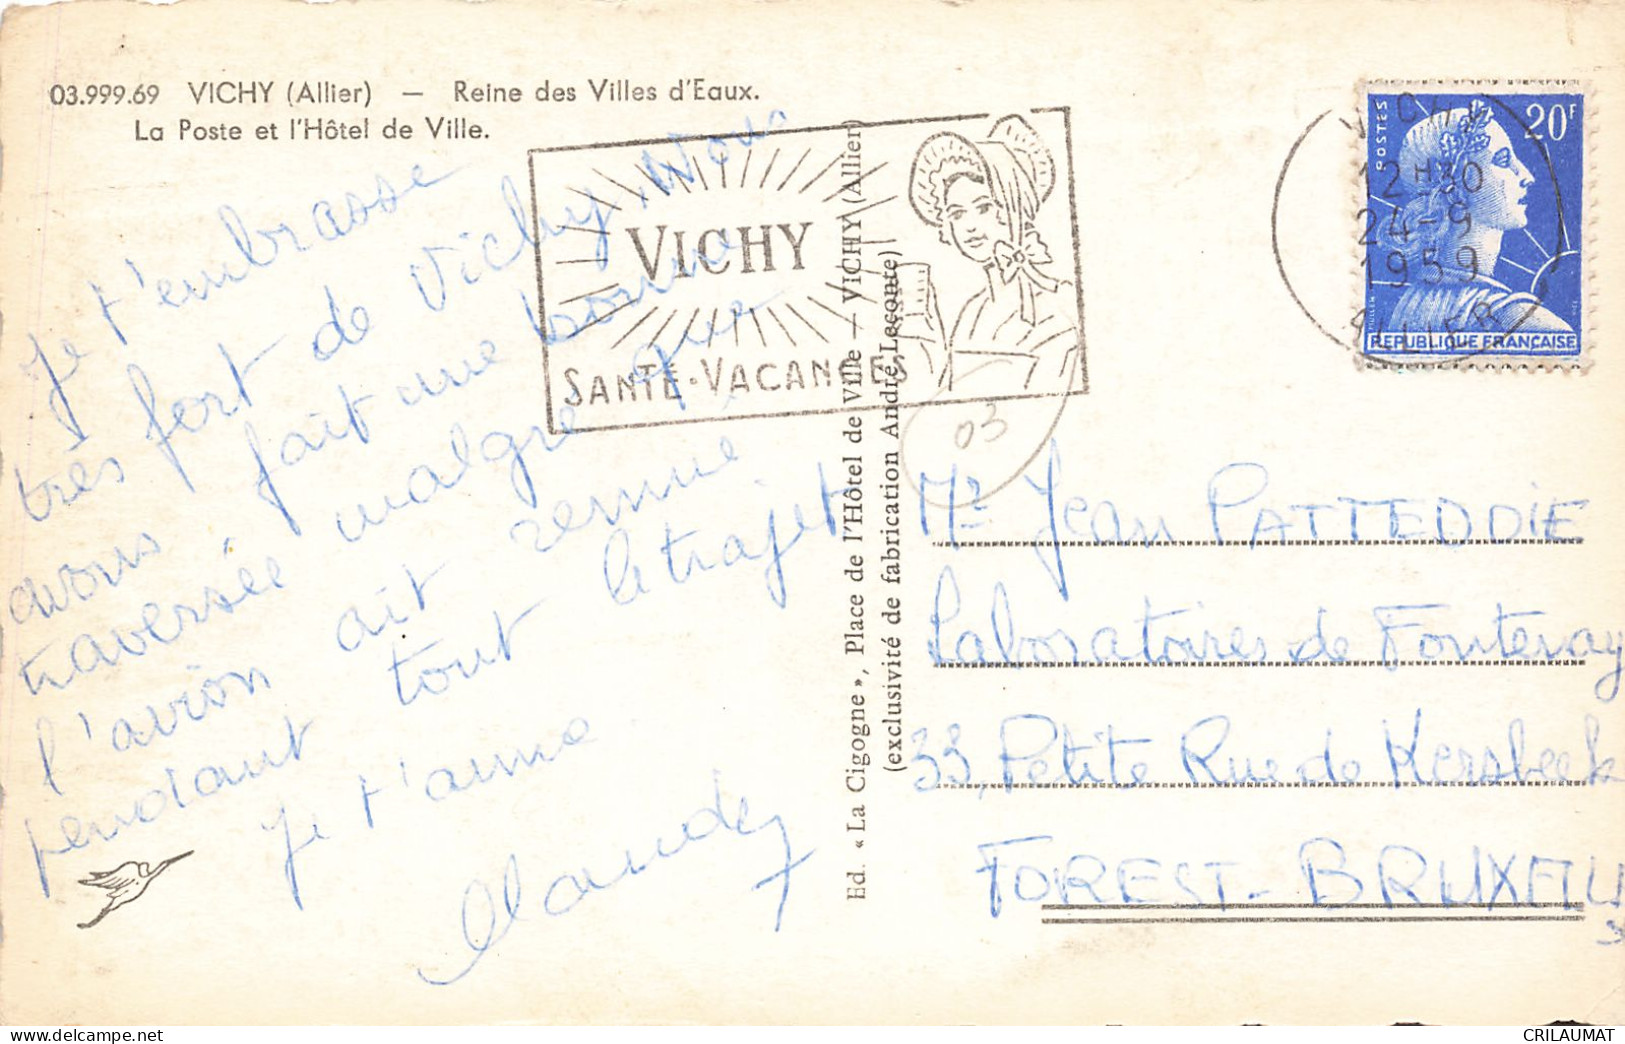 03.999.69 VICHY (Allier) — Reine des Villes d'Eaux.
La Poste et l'Hôtel de Ville.
Je t'embrasse
très fort de Vichy. Nous
avons fait une bonne
traversée malgré que
l'avion ait remué
pendant tout le trajet
Je t'aime
VICHY
SANTÉ-VACANCES
Ed. « La Cigogne », Place de l'Hôtel de Ville — VICHY (Allier)
(exclusivité de fabrication André Leconte)
03
VICHY
12 H 30
24-9
1959
ALLIER
POSTES
20F
REPUBLIQUE FRANÇAISE
Mr Jean PATTEDOIE
Laboratoires de Fontenay
33, Petite Rue de Kersbeek
FOREST-BRUXELLES
delcampe.net
CRILAUMAT